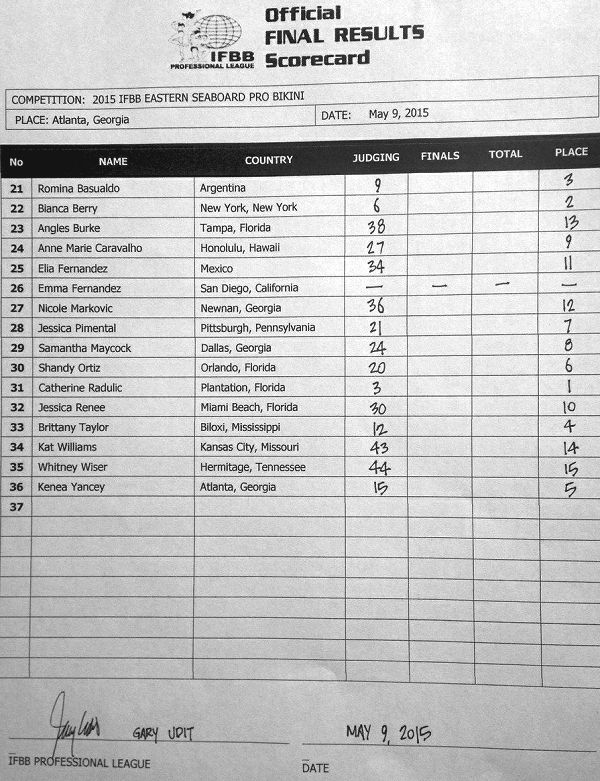 IFBB
PROFESSIONAL LEAGUE
Official
FINAL RESULTS
Scorecard
COMPETITION: 2015 IFBB EASTERN SEABOARD PRO BIKINI
PLACE: Atlanta, Georgia DATE: May 9, 2015
No NAME COUNTRY JUDGING FINALS TOTAL PLACE
21 Romina Basualdo Argentina 9 3
22 Bianca Berry New York, New York 6 2
23 Angles Burke Tampa, Florida 38 13
24 Anne Marie Caravalho Honolulu, Hawaii 27 9
25 Elia Fernandez Mexico 34 11
26 Emma Fernandez San Diego, California — — — —
27 Nicole Markovic Newnan, Georgia 36 12
28 Jessica Pimental Pittsburgh, Pennsylvania 21 7
29 Samantha Maycock Dallas, Georgia 24 8
30 Shandy Ortiz Orlando, Florida 20 6
31 Catherine Radulic Plantation, Florida 3 1
32 Jessica Renee Miami Beach, Florida 30 10
33 Brittany Taylor Biloxi, Mississippi 12 4
34 Kat Williams Kansas City, Missouri 43 14
35 Whitney Wiser Hermitage, Tennessee 44 15
36 Kenea Yancey Atlanta, Georgia 15 5
37
GARY UDIT MAY 9, 2015
IFBB PROFESSIONAL LEAGUE DATE